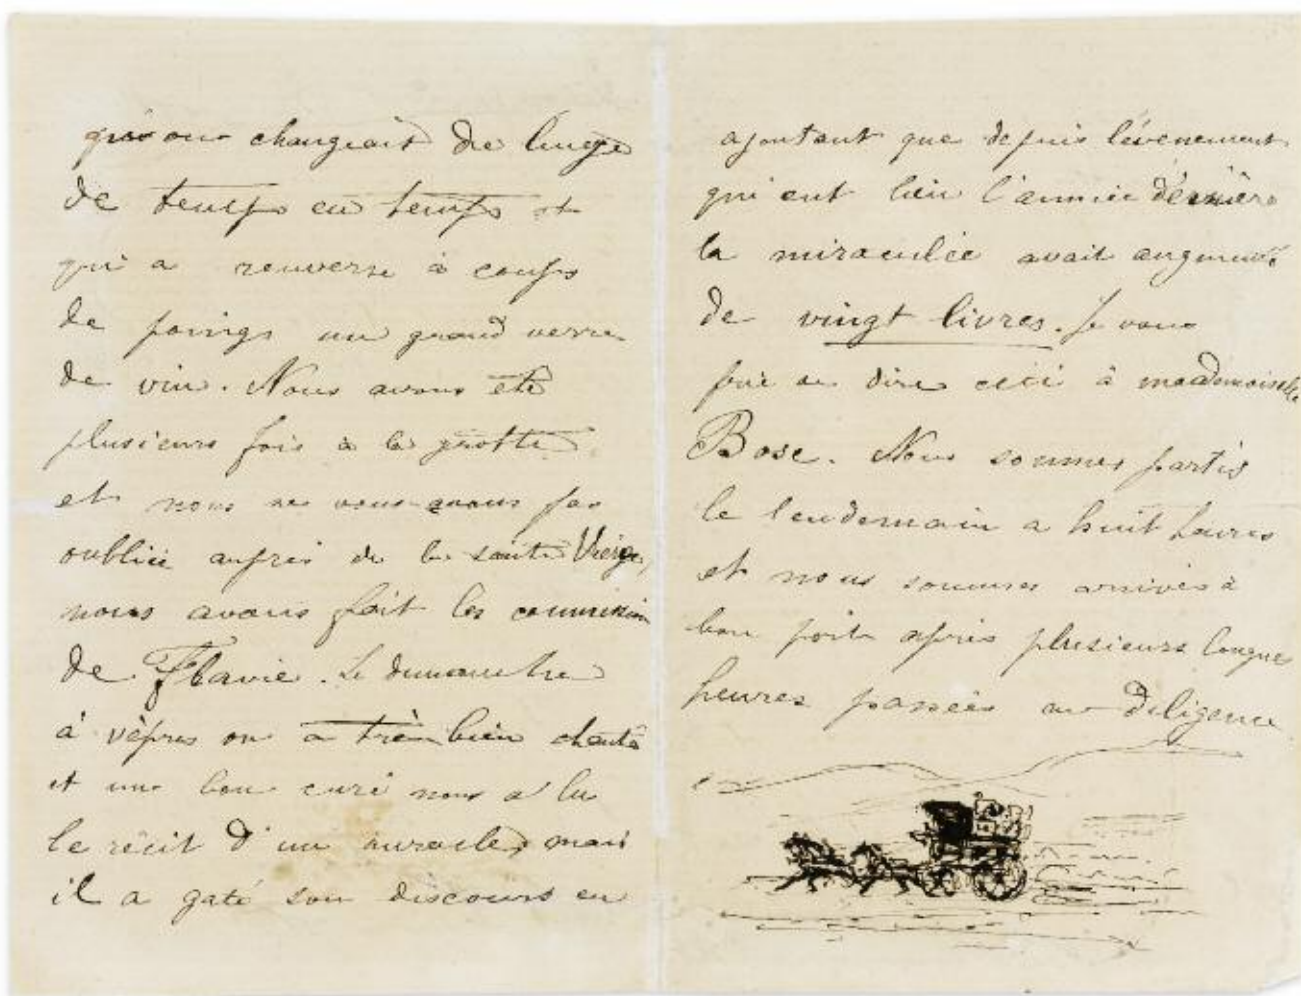 changeait de linge
de temps en temps et
qui a renversé à coups
de poings un grand verre
de vin. Nous avons été
plusieurs fois à la grotte
et nous ne vous avons pas
oubliée auprès de la sainte Vierge,
nous avons fait les commission
de Flavie. Le dimanche
à vèpres on a très bien chanté
et un bon curé nous a lu
le récit d'un miracle, mais
il a gaté son discours en
ajoutant que depuis l'évènement
qui eut lieu l'année dérnière
la miraculée avait augmenté
de vingt livres. Je vous
prie de dire ceci à mademoiselle
Bosc. Nous sommes partis
le lendemain a huit heures
et nous sommes arrivés à
bon port après plusieurs longues
heures passées en diligence